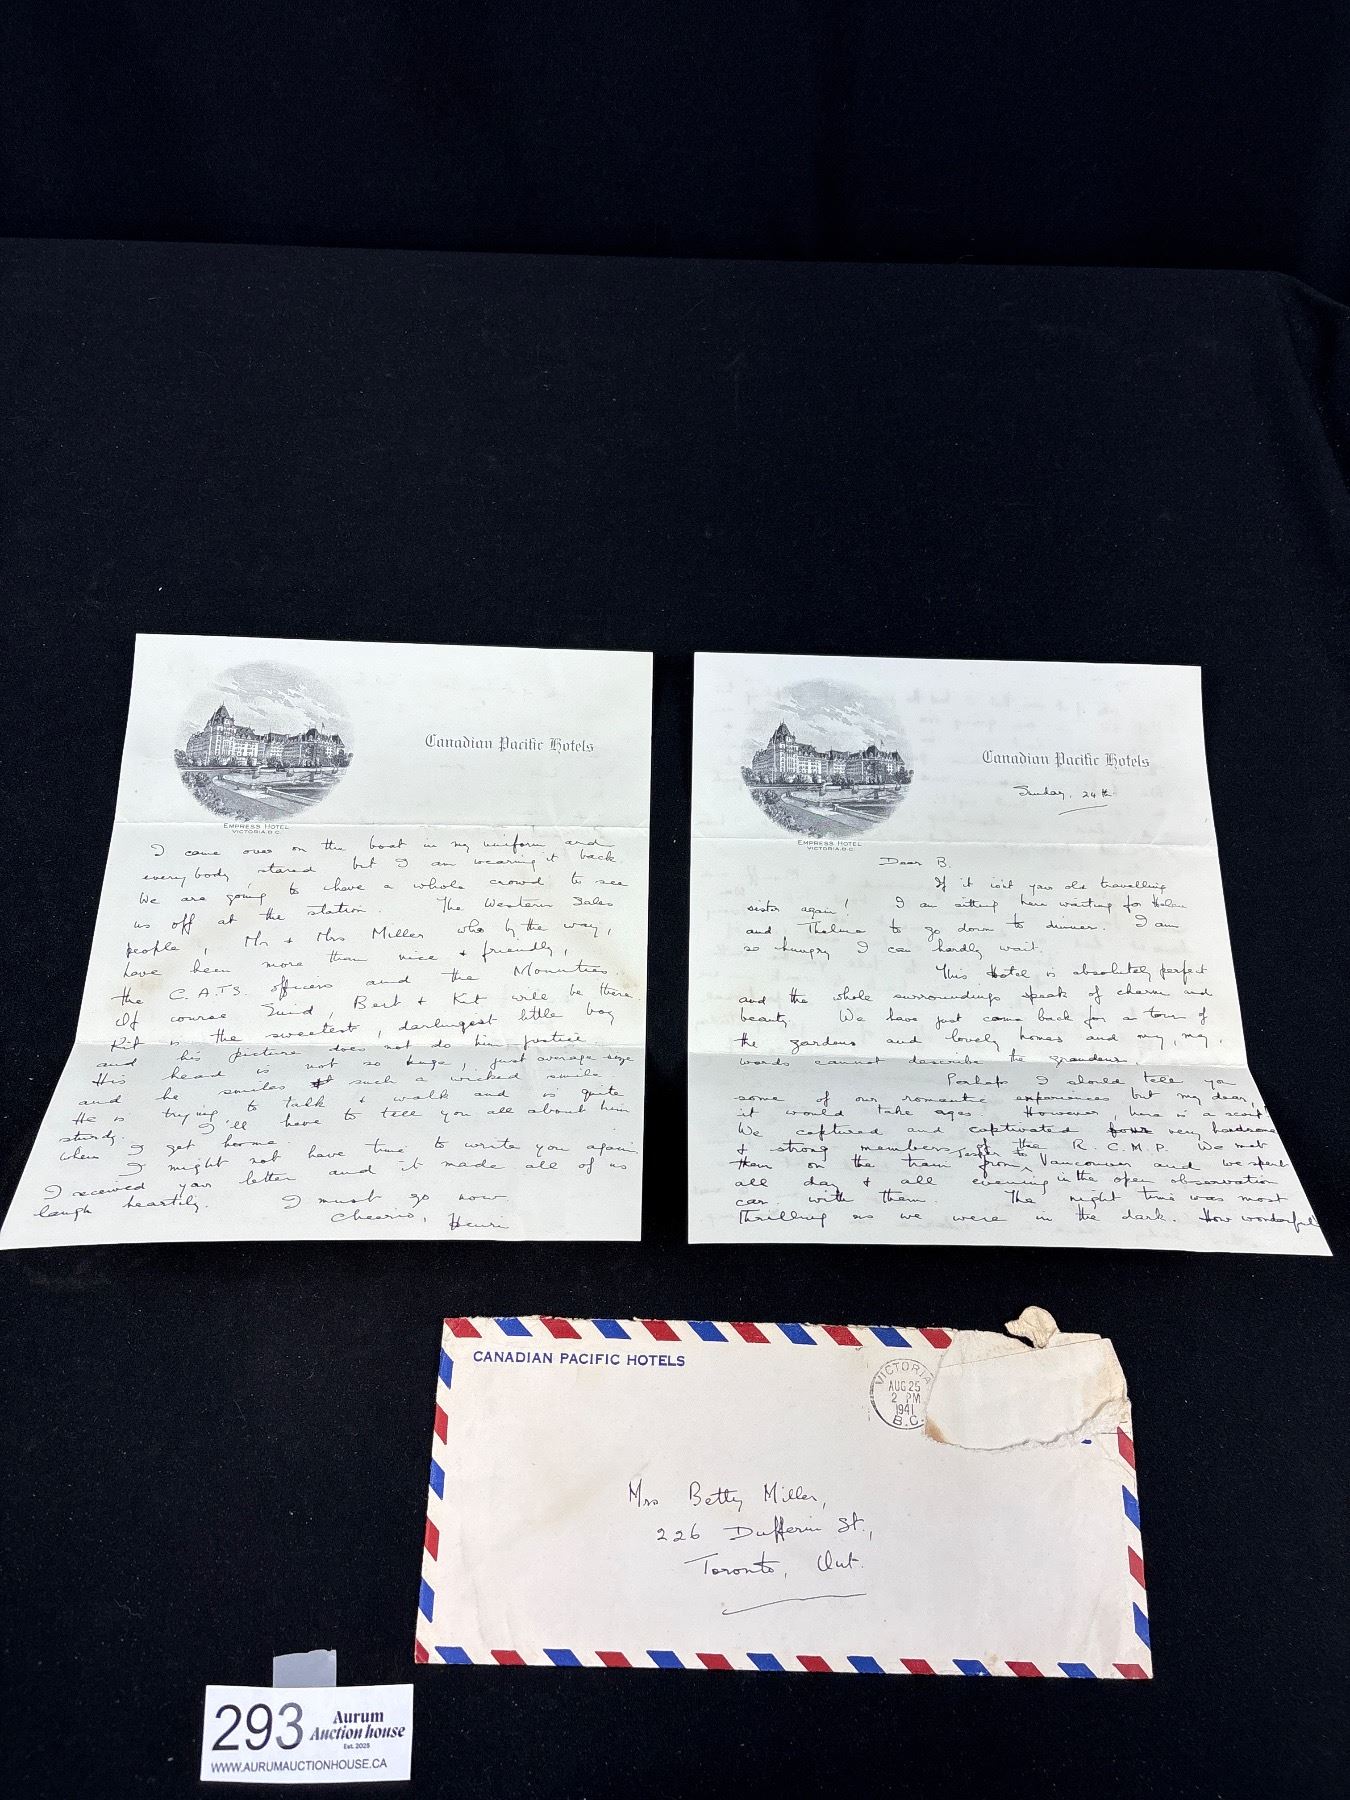 Canadian Pacific Hotels
EMPRESS HOTEL
VICTORIA, B.C.
I came over on the boat in my uniform and
everybody stared but I am wearing it back.
We are going to have a whole crowd to see
us off at the station. The Western Sales
people, Mr & Mrs Miller who by the way,
have been more than nice & friendly,
the C.A.T.S. officers and the Mounties.
Of course Enid, Bert & Kit will be there.
Kit is the sweetest, darlingest little boy
and his picture does not do him justice.
His head is not so huge, just average size
and he smiles such a wicked smile.
He is trying to talk & walk and is quite
sturdy. I'll have to tell you all about him
when I get home.
I might not have time to write you again.
I received your letter and it made all of us
laugh heartily. I must go now.
Cheerio, Henri
Canadian Pacific Hotels
Sunday, 24th
EMPRESS HOTEL
VICTORIA, B.C.
Dear B.
If it isn't your old travelling
sister again! I am sitting here waiting for Helen
and Thelma to go down to dinner. I am
so hungry I can hardly wait.
This Hotel is absolutely perfect
and the whole surroundings speak of charm and
beauty. We have just come back for a tour of
the gardens and lovely homes and my, my,
words cannot describe the grandeur.
Perhaps I should tell you
some of our romantic experiences but my dear,
it would take ages. However, here is a scoop!
We captured and captivated four very handsome
& strong members of the R.C.M.P. We met
them on the train from Jasper to Vancouver and we spent
all day & all evening in the open observation
car with them. The night time was most
thrilling as we were in the dark. How wonderful
CANADIAN PACIFIC HOTELS
VICTORIA
AUG 25
2 PM
1941
B.C.
Mrs Betty Miller,
226 Dufferin St.,
Toronto, Ont.
293
Aurum
Auction house
Est. 2025
WWW.AURUMAUCTIONHOUSE.CA